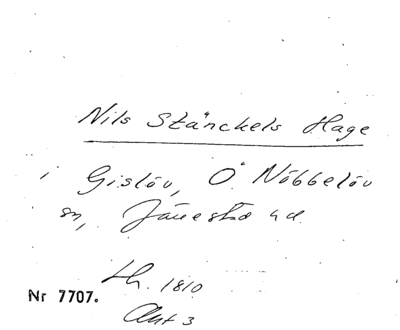 Nils Stänckels Hage
i Gislöv, Ö. Nöbbelöv
sn, Järrestad hd.
Lh. 1810
Nr 7707.
Akt 3